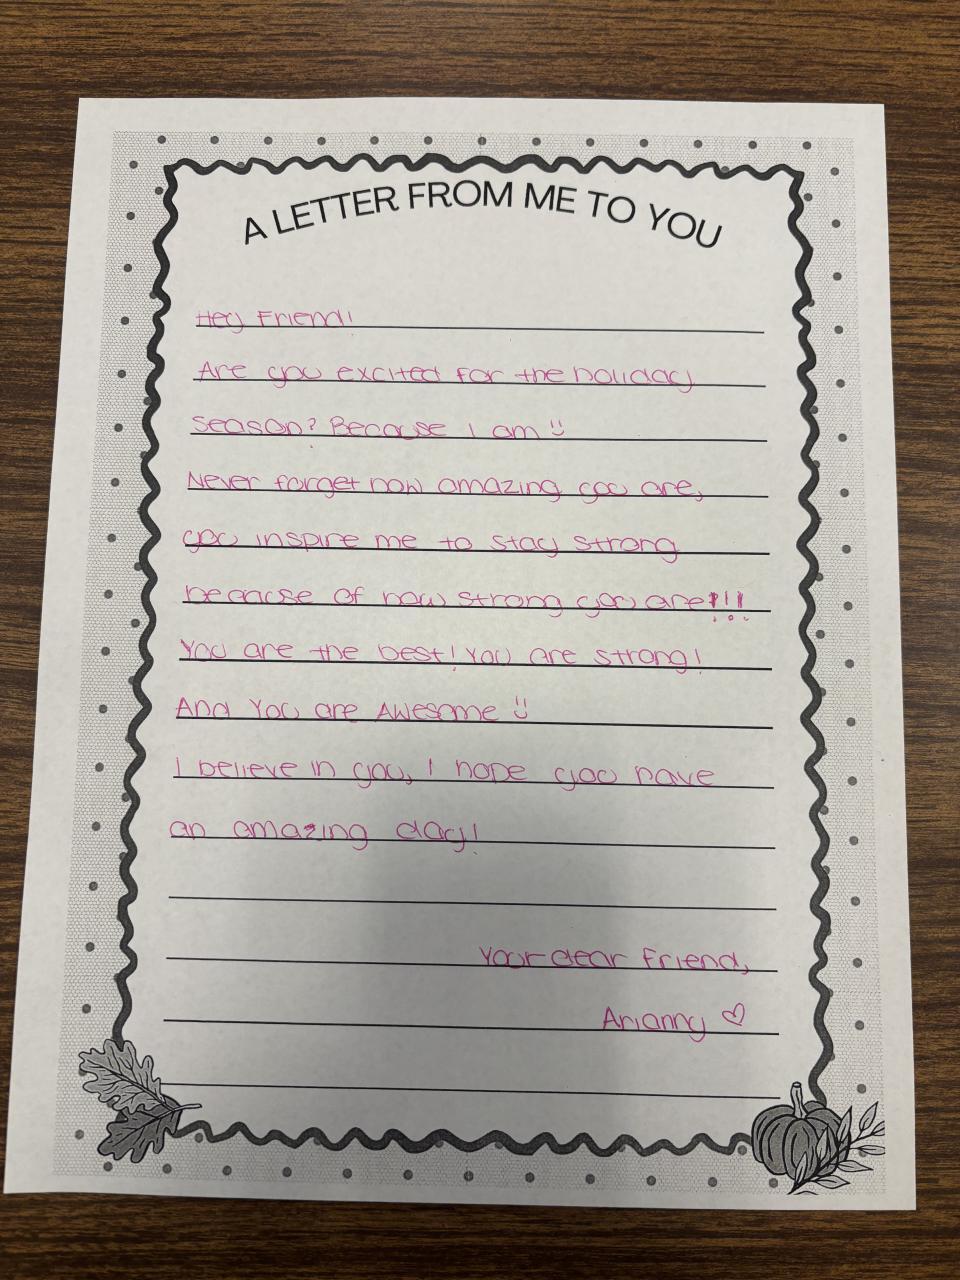 A LETTER FROM ME TO YOU
Hey Friend!
Are you excited for the holiday
season? Because I am :)
Never forget how amazing you are,
you inspire me to stay strong
because of how strong you are!!!
You are the best! You are strong!
And You are Awesome :)
I believe in you, I hope you have
an amazing day!
Your dear friend,
Arianny ♡